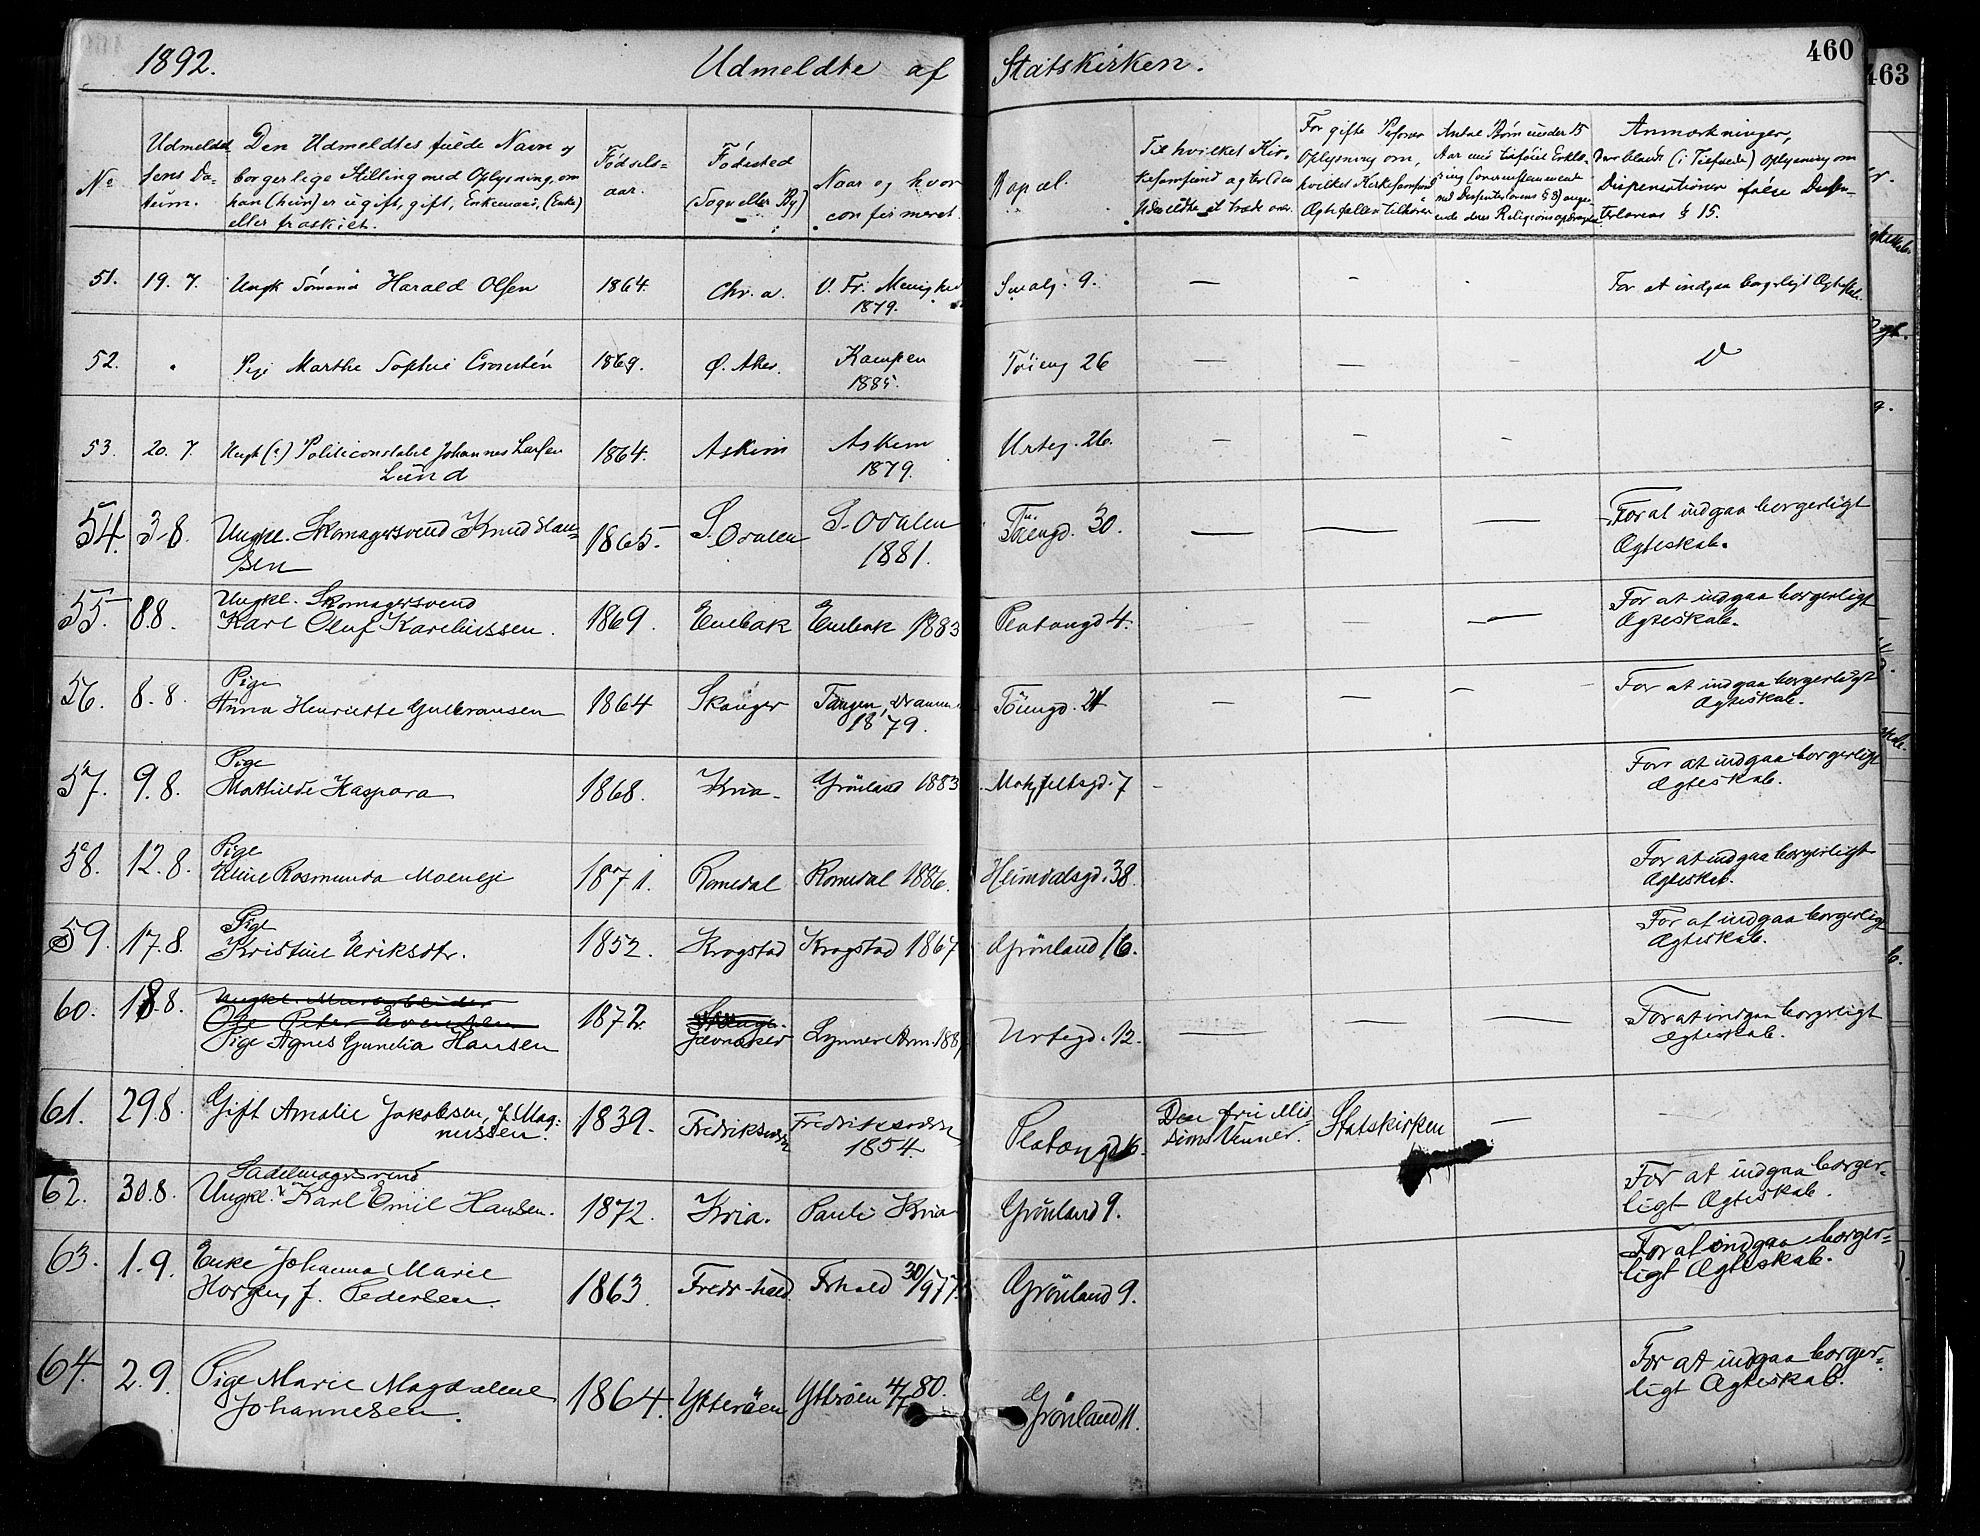 1892. Udmeldte af Statskirken. 460
463
No
Udmeldel-
sens Da-
tum.
Den Udmeldtes fulde Navn og
borgerlige Stilling med Oplysning, om
han (hun) er ugift, gift, Enkemand, (Enke)
eller fraskilt.
Fødsels-
aar.
Fødested
(Sogn eller By)
Naar og hvor
confirmeret.
Bopæl.
Til hvilket Kir-
kesamfund agter den
Udmeldte at træde over.
For gifte Personer
Oplysning om,
hvilket Kirkesamfund
Ægtefællen tilhører
Antal Børn under 15
Aar med tilføiet Erklæ-
ring (overensstemmende
med Dissenterlovens § 8) angaa-
ende deres Religionsopdragelse
Anmærkninger,
derblandt (i Tilfælde) Oplysning om
Dispensationer ifølge Dissen-
terlovens § 15.
51. 19. 7. Ungk Sømand Harald Olsen 1864. Chr.a. V. Fr. Menighed Smalg. 9. — — For at indgaa borgerligt Ægteskab.
1879.
52. " Pige Marthe Sophie 1869. Ø. Aker. Kampen Tøieng 26 — — — D
1885.
53. 20. 7. Ungk (?) Politiconstabel Johannes Larsen 1864. Askim Askim Urteg. 26. — — —
Lund 1879.
54. 3-8. Ungkl. Skomagersvend Knud Han- 1865. S. Odalen S. Odalen Töiengd. 30. — — — For at indgaa borgerligt
sen 1881. Ægteskab.
55. 8.8. Ungkl. Skomagersvend For at indgaa borgerligt
Karl Oluf Kareliussen. 1869. Enebak Enebak 1883 Platougd 4. — — — Ægteskab.
56. 8.8. Pige For at indgaa borgerligt
Anna Henriette Gulbransen 1864 Skauger Tangen, Dramm. Töiengd. 21 — — — Ægteskab.
1879.
57. 9.8. Pige For at indgaa borgerligt
Mathilde Kaspara 1868. Kria. Grönland 1883 Motzfeltsgd. 7 — Ægteskab.
58. 12.8. Pige For at indgaa borgerligt
Rosmunda 1871. Romedal Romedal 1886. Heimdalsgd. 38. Ægteskab.
59. 17.8. Pige For at indgaa borgerligt
Kristine Eriksdtr. 1852. Krogstad Krogstad 1867 Grönland 16. Ægteskab.
60. 18.8. Ungkl. Murarbeider
Ole Peter Evensen 1872. For at indgaa borgerligt
Pige Agnes Gunelia Hansen Jevnaker Lynner Urtegd. 12. — — — Ægteskab.
61. 29.8. Gift Amalie Jakobsen, f. Mag- 1839. Fredriksværn Fredriksværn Platougd 16. Den frie Mis- Statskirken — —
nussen. 1854 sions Venner.
62. 30.8. Sadelmagersvend For at indgaa borger-
Ungkl. Karl Emil Hansen. 1872. Kria. Pauli Kria Grönland 9. ligt Ægteskab.
63. 1.9. Enke Johanna Marie For at indgaa borger-
Horgen, f. Pedersen. 1863. Fredr-hald Frhald 30/9 77. Grönland 9. ligt Ægteskab.
64. 2.9. Pige Marie Magdalene 1864. Ytterøen Ytterøen 4/7 80. Grönland 11. For at indgaa borger-
Johannesen. ligt Ægteskab.